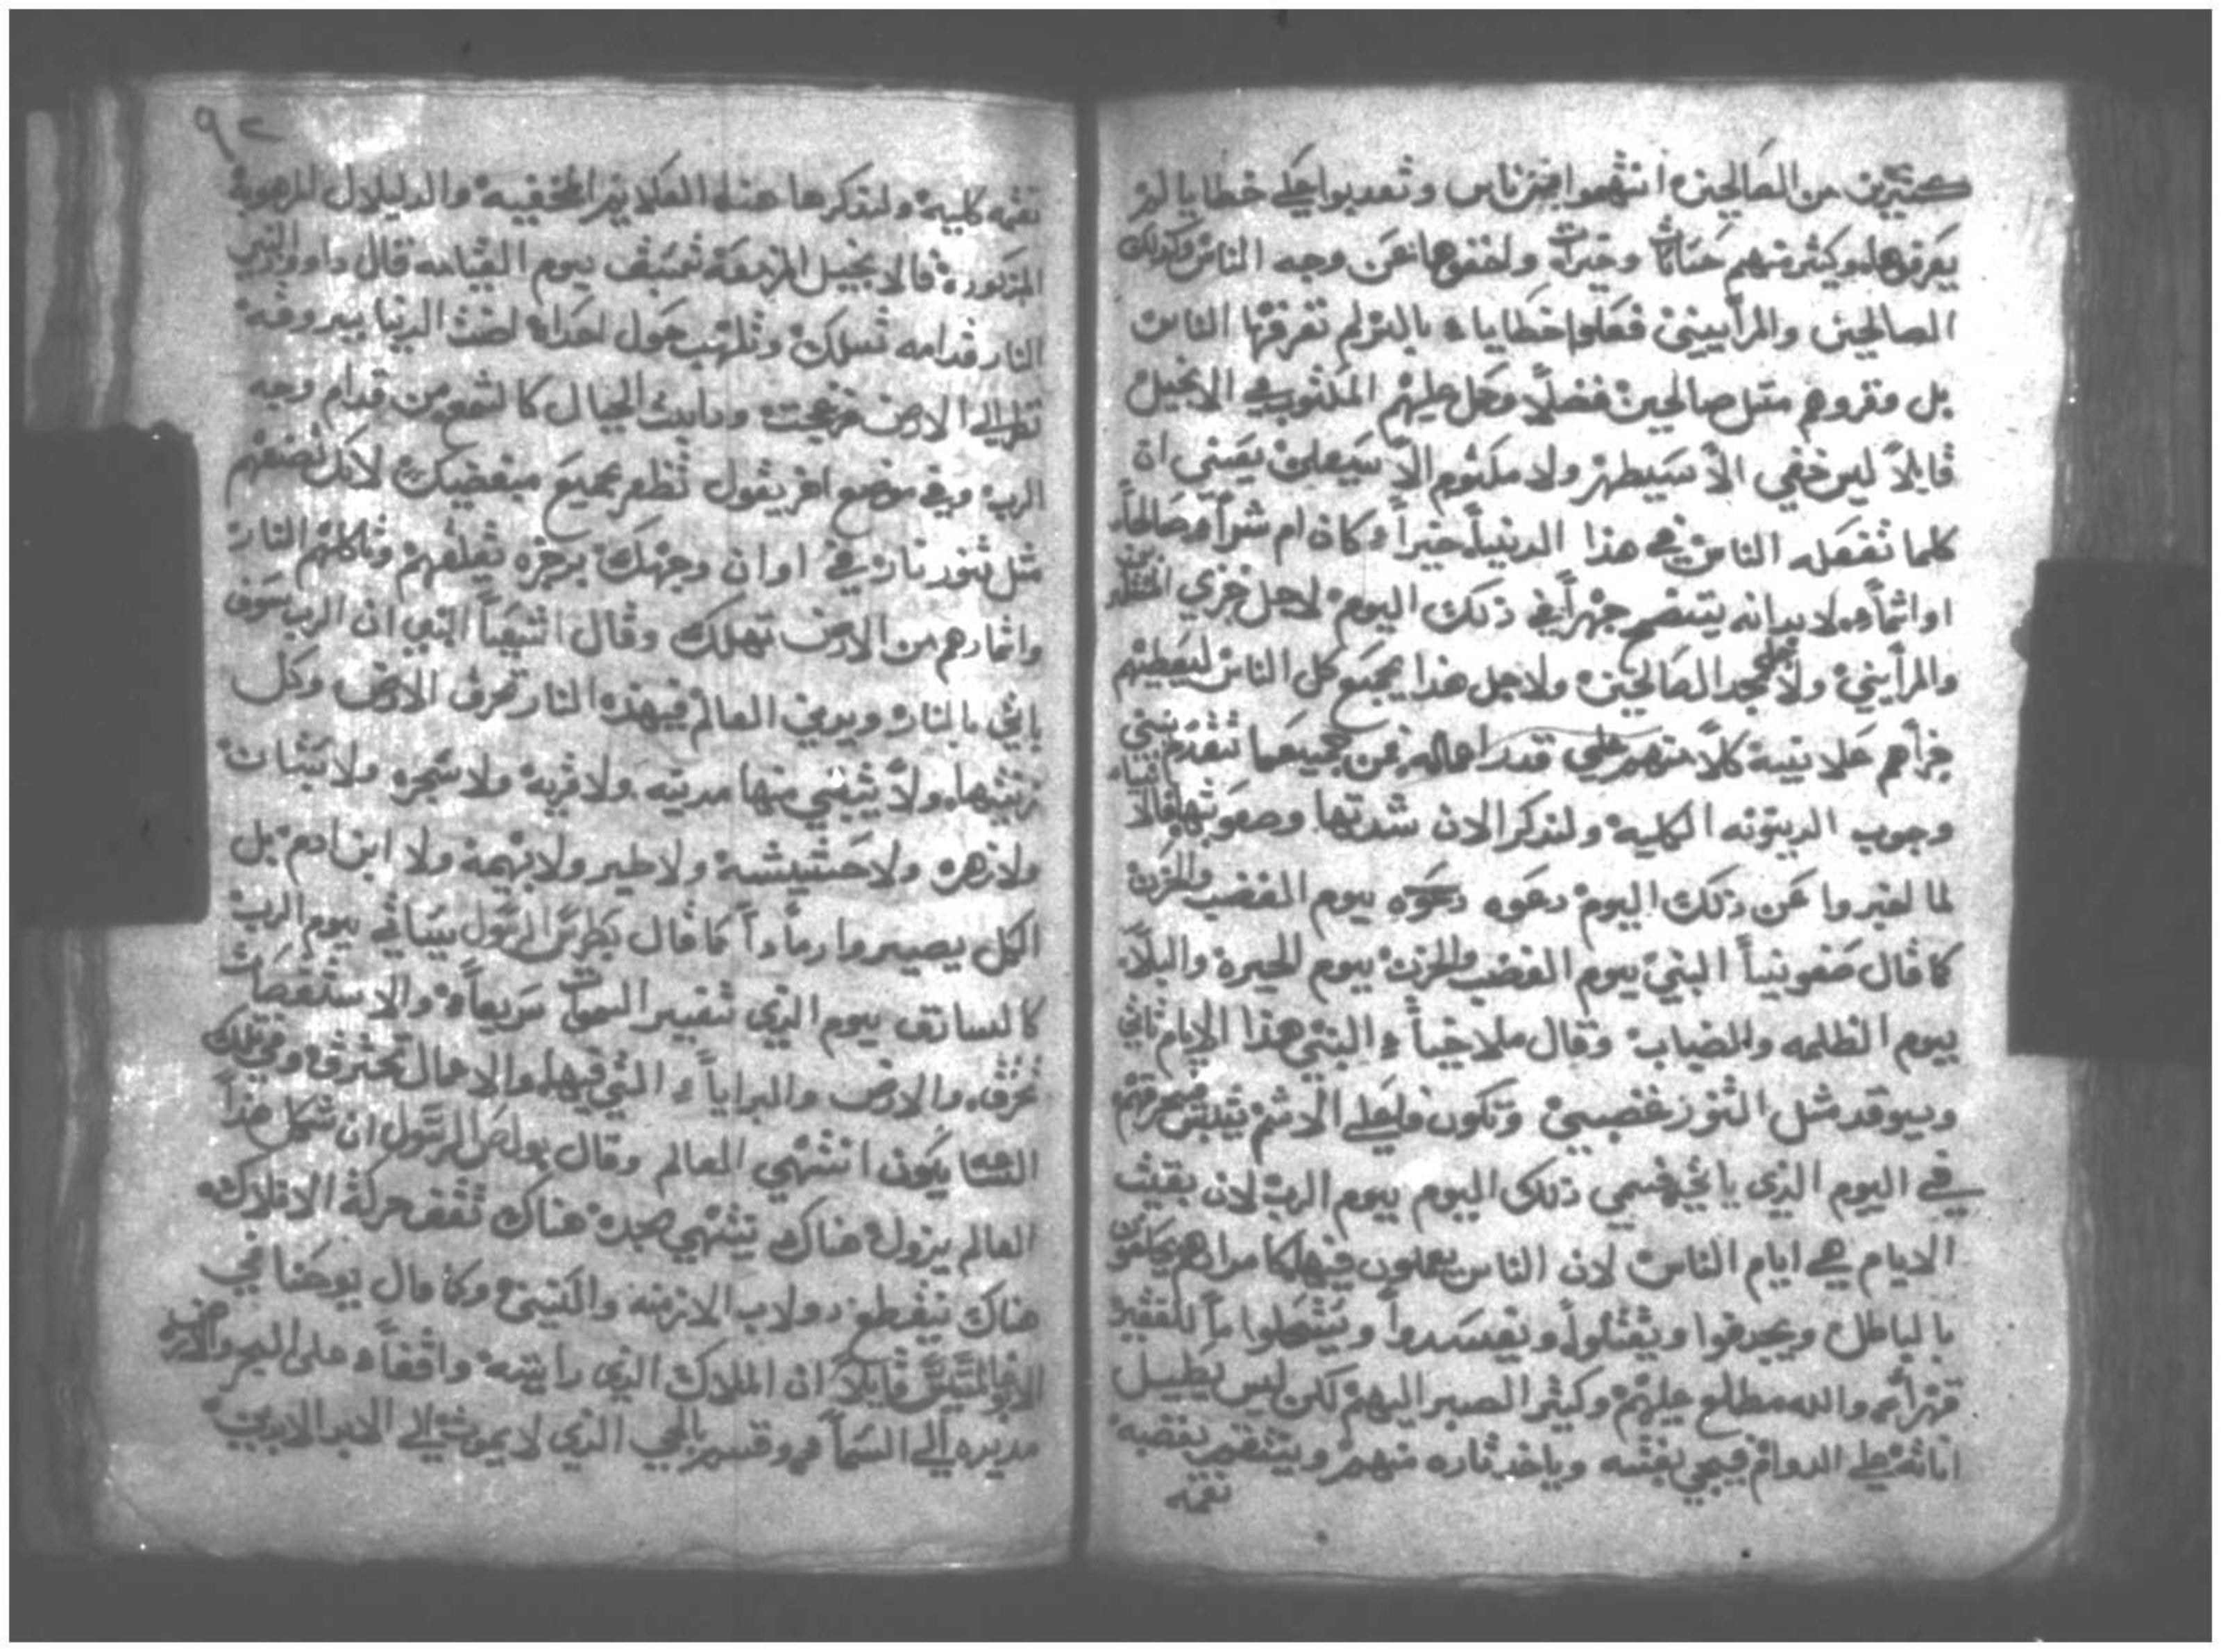 كثيرين من الصالحين اتهموا من ناس وتعدبوا علي خطايا لم
يعرفوها وكثير منهم حسنات وخيرات واخفوها عن وجه الناس وكدلك
الصالحين والمرأيين فعلوا خطايا بالتزلم تعرفها الناس
بل وقروهم متل صالحين فضلاً وحل عليهم المكتوب في الانجيل
قايلاً ليس خفي الاّ سيطهر ولا مكتوم الاّ سيعلن يعني ان
كلما تفعله الناس في هذا الدنيا خيراً وكان ام شراً وصالحاً
او اثماً لا بد انه يتضح جهراً في ذلك اليوم لاجل خزي
والمرأيين ولاجل مجد الصالحين ولاجل هذا يجمع كل الناس ليعطيهم
جزأهم علانية كلاً منهم علي قدر اعماله فمن جميعما تقدم
وجوب الدينونه الكلية ولندكر الان شدتها وصعوبتها
لما اخبروا عن ذلك اليوم دعوه دعوه يوم الغضب والحزن
كما قال صفونيا النبي يوم الغضب والحزن يوم الحيرة والبلآء
يوم الظلمه والضباب وقال ملاخيا النبي هذا الايام تاتي
ويوقد مثل التنور غضبي وتكون فاعلي الاثم
في اليوم الذي ياتي فسمي ذلك اليوم يوم الرب لان بقيت
الايام هي ايام الناس لان الناس يعملون فيها كما مرادهم يحلفون
بالباطل ويجدفوا ويقتلوا ويفسدوا
والله مطلع عليهم وكيثر الصبر اليهم لكن ليس يطيل
اناته علي الدوام فيجي بغتته وياخد تاره منهم وينتقم بغضبه
نقمه
٩٢
نقمه كليه ولندكرها عنه العلايم المخفيه والدليلال المرهوبة
المزبوره قالانجيل المزمعة تسبق يوم القيامه قال داوود النبي
النار قدامه تسلك وتلهب حول اعداه اضت الدنيا ببروقه
نظر الي الارض فزعجت ودابت الجبال كالشمع من قدام وجه
الرب وفي موضع اخر يقول تظفر بجميع مبغضيك لانك تضعهم
مثل تنور نار في اوان وجهك برجزه تقلقهم وتاكلهم النار
واثمارهم من الارض تهلك وقال اشعيا النبي ان الرب سوف
ياتي بالنار ويدين العالم فبهذه النار تحرق الارض وكل
زينتها ولا يبقي منها مدينه ولا قرية ولا شجره ولا نبات
ولا زهره ولا حشيشة ولا طير ولا بهيمة ولا ابن ادم بل
الكل يصيروا رماداً كما قال بطرس الرسول سياتي يوم الرب
كالسارق يوم الذي تتغير السموات سريعاً والاستقصات
تحرق والارض والبرايا التي فيها والاعمال تحترق وفي تلك
الساعة يكون انتهي العالم وقال بولص الرسول ان شكل هذا
العالم يزول هناك ينتهي مجده هناك تقف حركة الافلاك
هناك ينقطع دولاب الازمنه والسنين وكما قال يوحنا في
قايلاً ان الملاك الذي رايته واقفاً على البحر والارض
مد يده الي السما وقسم بالحي الذي لا يموت الي الابد الابدين